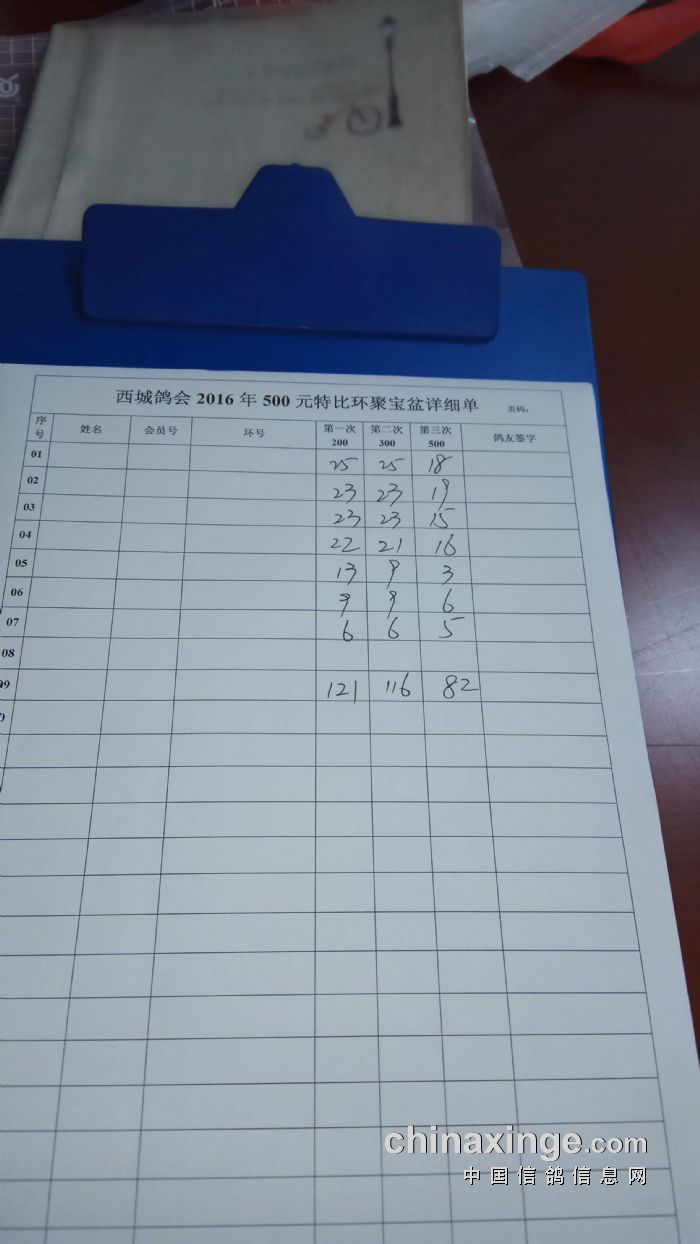 西城鸽会 2016 年 500 元特比环聚宝盆详细单 页码：
序号 姓名 会员号 环号 第一次 200 第二次 300 第三次 500 鸽友签字
01 25 25 18
02 23 23 19
03 23 23 15
04 22 21 16
05 13 9 3
06 9 9 6
07 6 6 5
08
09 121 116 82
chinaxinge.com
中国信鸽信息网